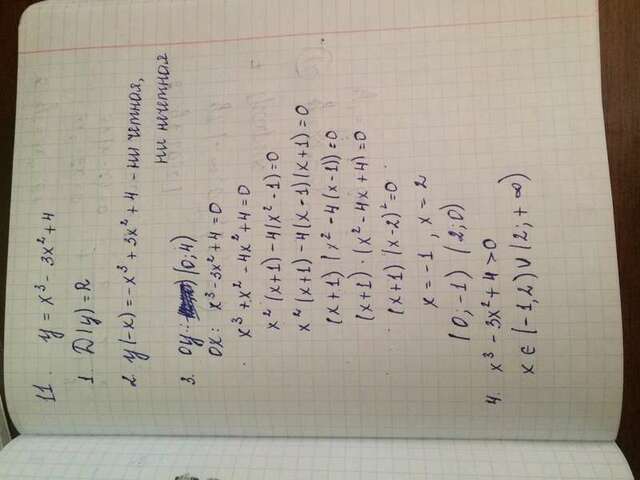 11. y = x³ - 3x² + 4
1. D(y) = R
2. y(-x) = -x³ + 3x² + 4 - ни четная,
ни нечетная
3. oy: (0; 4)
ox: x³ - 3x² + 4 = 0
x³ + x² - 4x² + 4 = 0
x² (x+1) - 4(x² - 1) = 0
x² (x+1) - 4(x - 1)(x+1) = 0
(x+1) (x² - 4(x-1)) = 0
(x+1) · (x² - 4x + 4) = 0
(x+1) (x-2)² = 0
x = -1, x = 2
(0; -1) (2; 0)
4. x³ - 3x² + 4 > 0
x ∈ (-1, 2) ∪ (2; +∞)